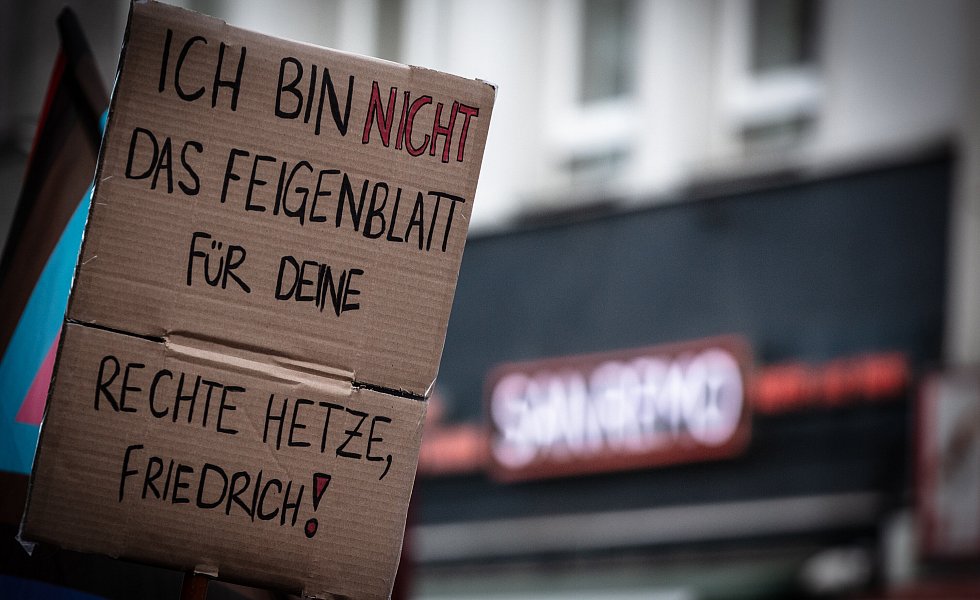 ICH BIN NICHT
DAS FEIGENBLATT
FÜR DEINE
RECHTE HETZE,
FRIEDRICH!
SANREMO